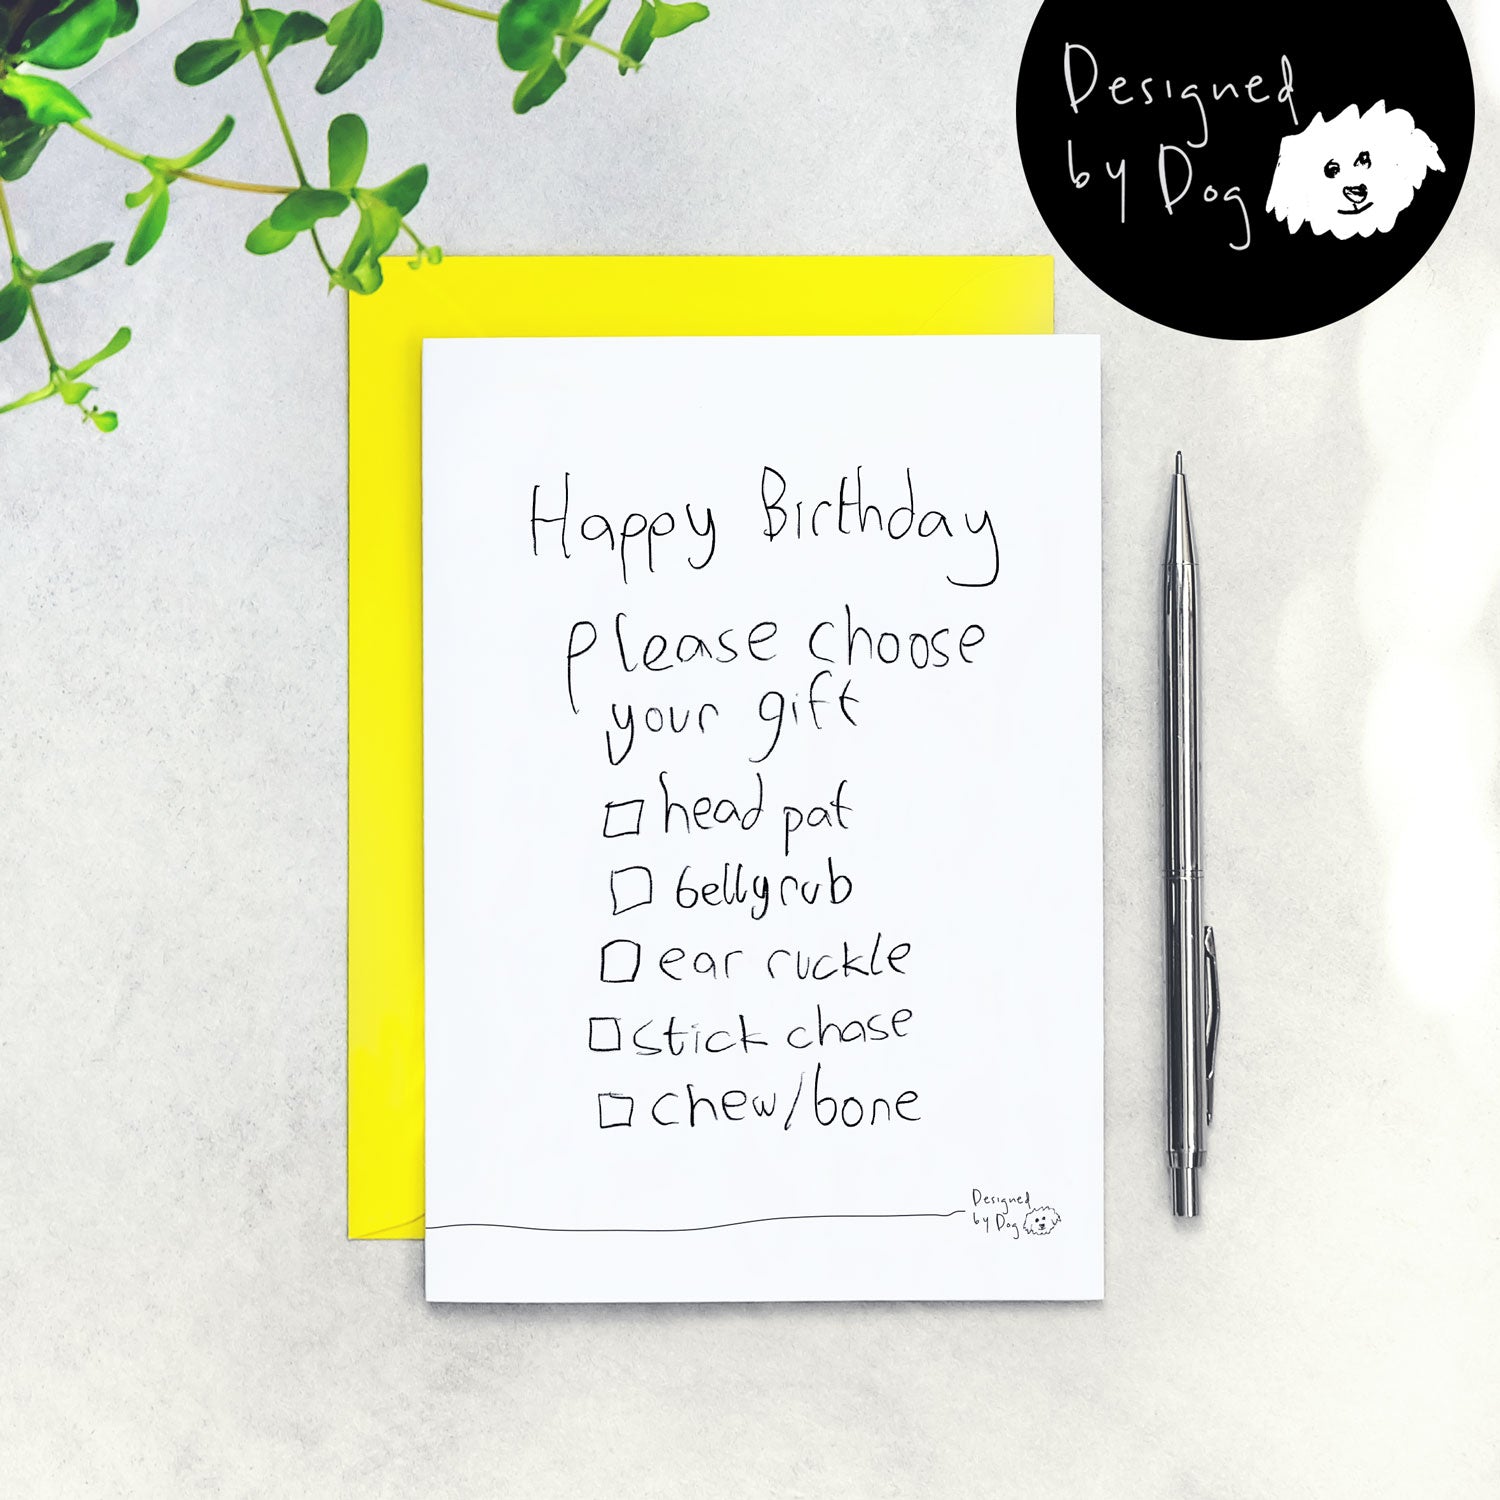 Designed
by Dog
Happy Birthday
please choose
your gift
head pat
belly rub
ear ruckle
stick chase
chew/bone
Designed
by Dog